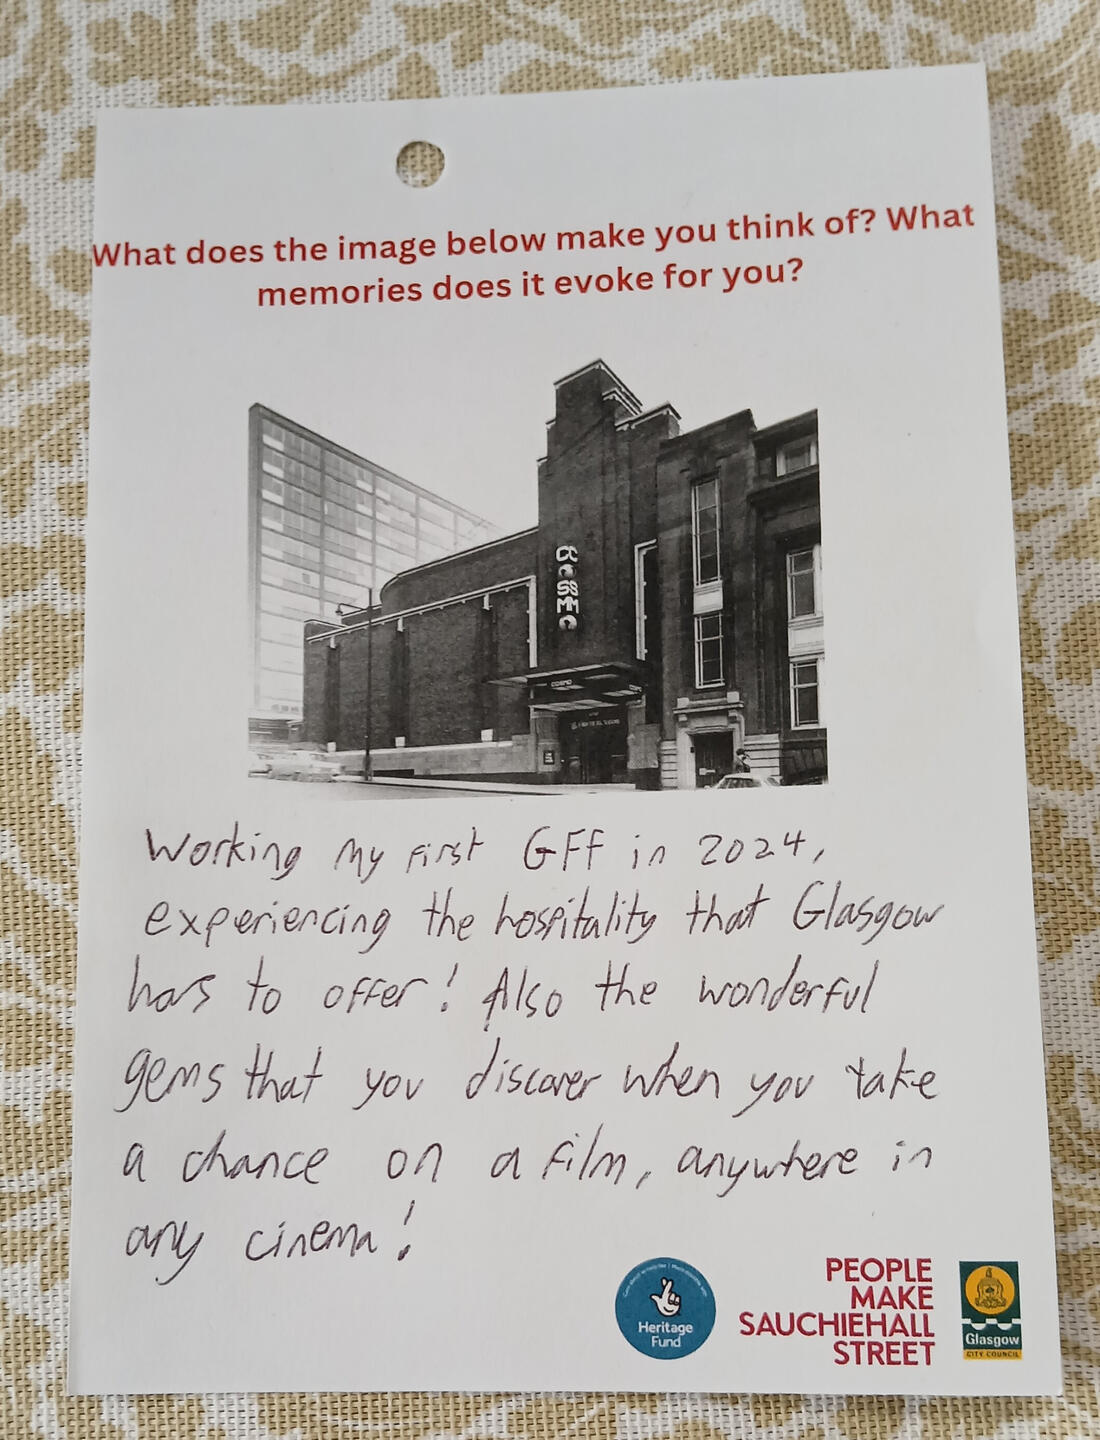 What does the image below make you think of? What
memories does it evoke for you?
COSMO
COSMO
Working My First GFF in 2024,
experiencing the hospitality that Glasgow
has to offer! Also the wonderful
gems that you discover when you take
a chance on a film, anywhere in
any cinema!
Heritage
Fund
PEOPLE
MAKE
SAUCHIEHALL
STREET
Glasgow
CITY COUNCIL